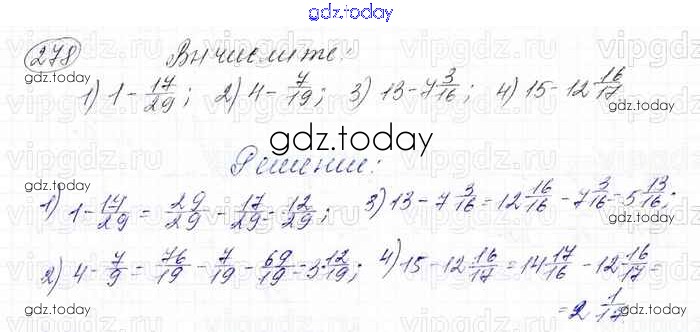 gdz.today
278 Вычислите:
1) 1 - 17/29; 2) 4 - 7/19; 3) 13 - 7 3/16; 4) 15 - 12 16/17
gdz.today
gdz.today
gdz.today
Решение:
1) 1 - 17/29 = 29/29 - 17/29 = 12/29; 3) 13 - 7 3/16 = 12 16/16 - 7 3/16 = 5 13/16;
2) 4 - 7/9 = 76/19 - 7/19 = 69/19 = 3 12/19; 4) 15 - 12 16/17 = 14 17/16 - 12 16/17 =
= 2 1/17
gdz.today
gdz.today
gdz.today